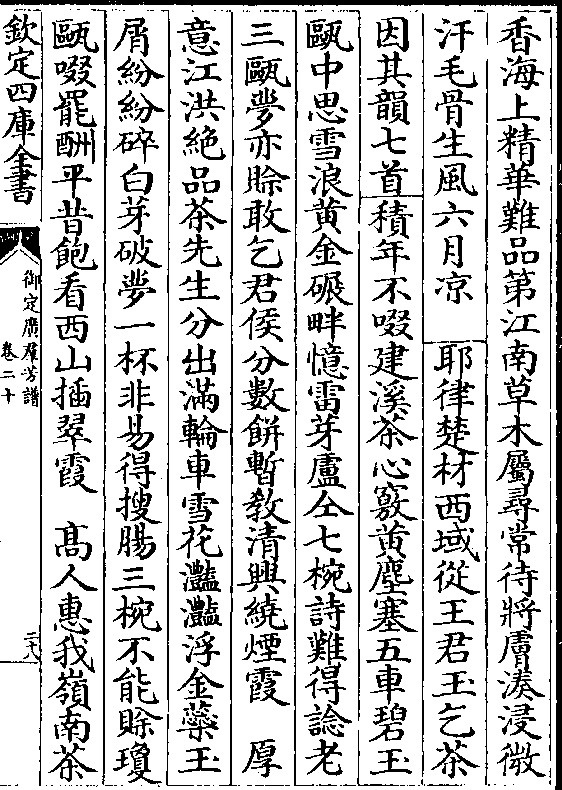 香海上精華難品第江南草木屬尋常待將膚湊浸微
汗毛骨生風六月凉　耶律楚材西域從王君玉乞茶
因其韻七首積年不啜建溪茶心竅黄塵塞五車碧玉
甌中思雪浪黄金碾畔憶雷芽盧仝七椀詩難得諗老
三甌夢亦賒敢乞君侯分數餅暫教清興繞煙霞　厚
意江洪絶品茶先生分出滿輪車雪花灧灧浮金蘂玉
屑紛紛碎白芽破夢一杯非易得搜腸三椀不能賒瓊
甌啜罷酬平昔飽看西山插翠霞　高人惠我嶺南茶
欽定四庫全書
御定廣羣芳譜
卷二十
二十八